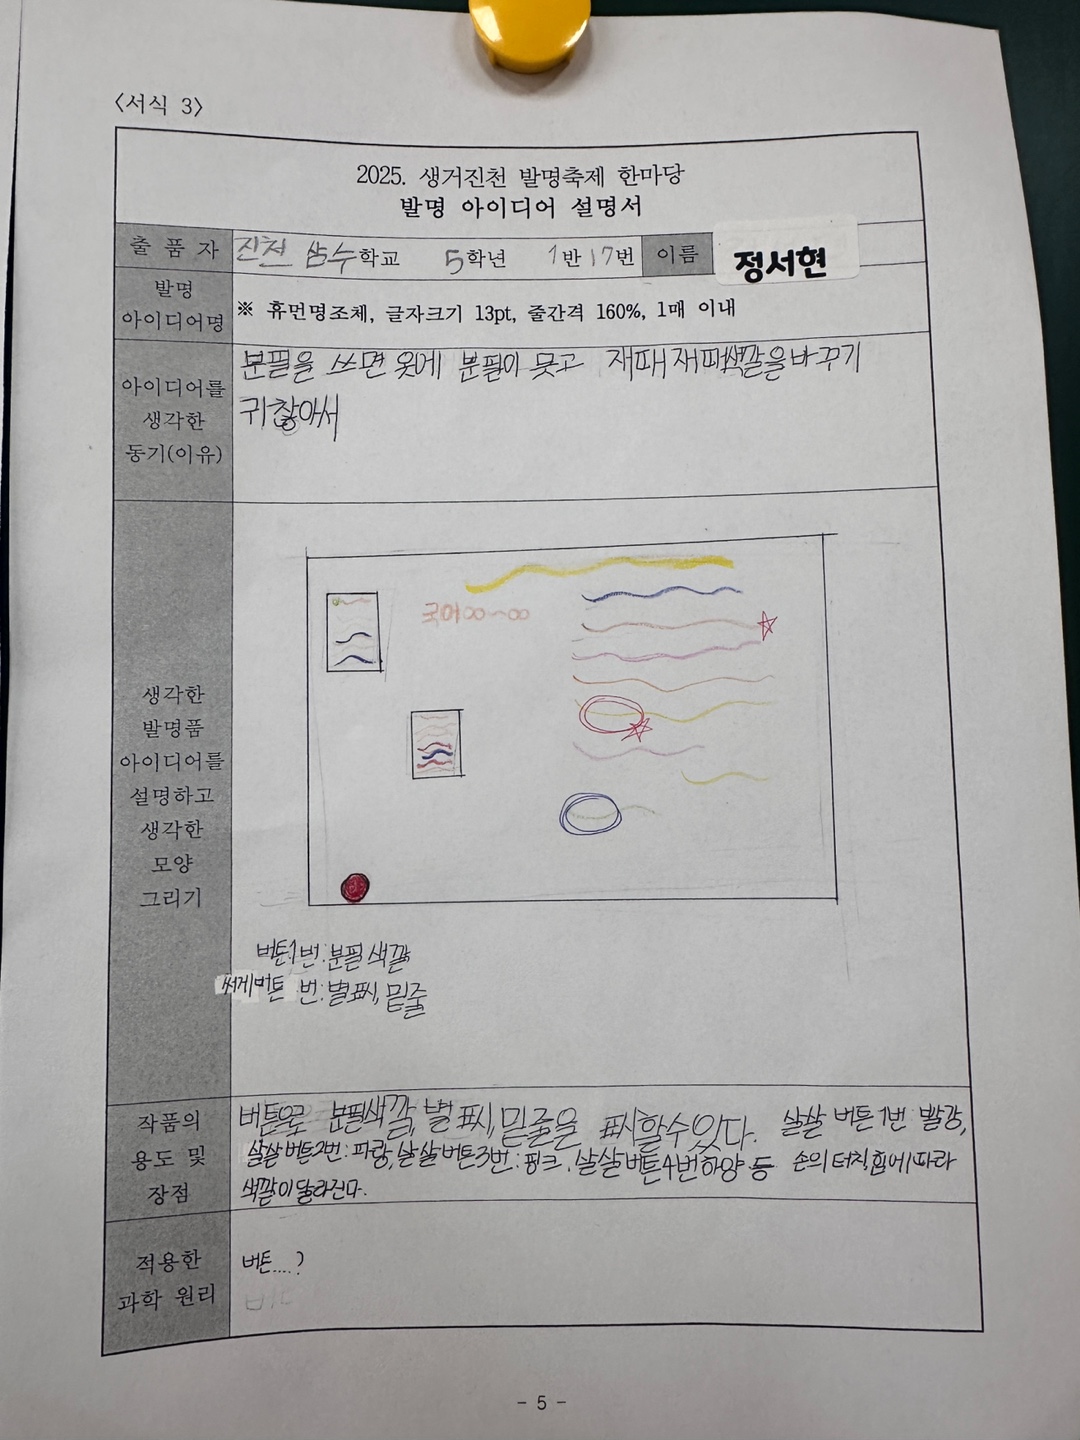 <서식 3>
2025. 생거진천 발명축제 한마당
발명 아이디어 설명서
출 품 자
진천 삼수학교 5학년 1반 17번
이름
정서현
발명
아이디어명
※ 휴먼명조체, 글자크기 13pt, 줄간격 160%, 1매 이내
아이디어를
생각한
동기(이유)
분필을 쓰면 옷에 분필이 뭇고 재때재때색깔을바꾸기
귀찮아서
생각한
발명품
아이디어를
설명하고
생각한
모양
그리기
국어∞~∞
버튼1번:분필색깔
쎄게버튼 번:별표시, 밑줄
작품의
용도 및
장점
버튼으로 분필색깔, 별표시, 밑줄을 표시할수있다. 살살 버튼1번 빨강,
살살버튼2번:파랑, 살살버튼3번:핑크, 살살버튼4번하양 등 손의 터치힘에따라
색깔이달라진다.
적용한
과학 원리
버튼....?
- 5 -